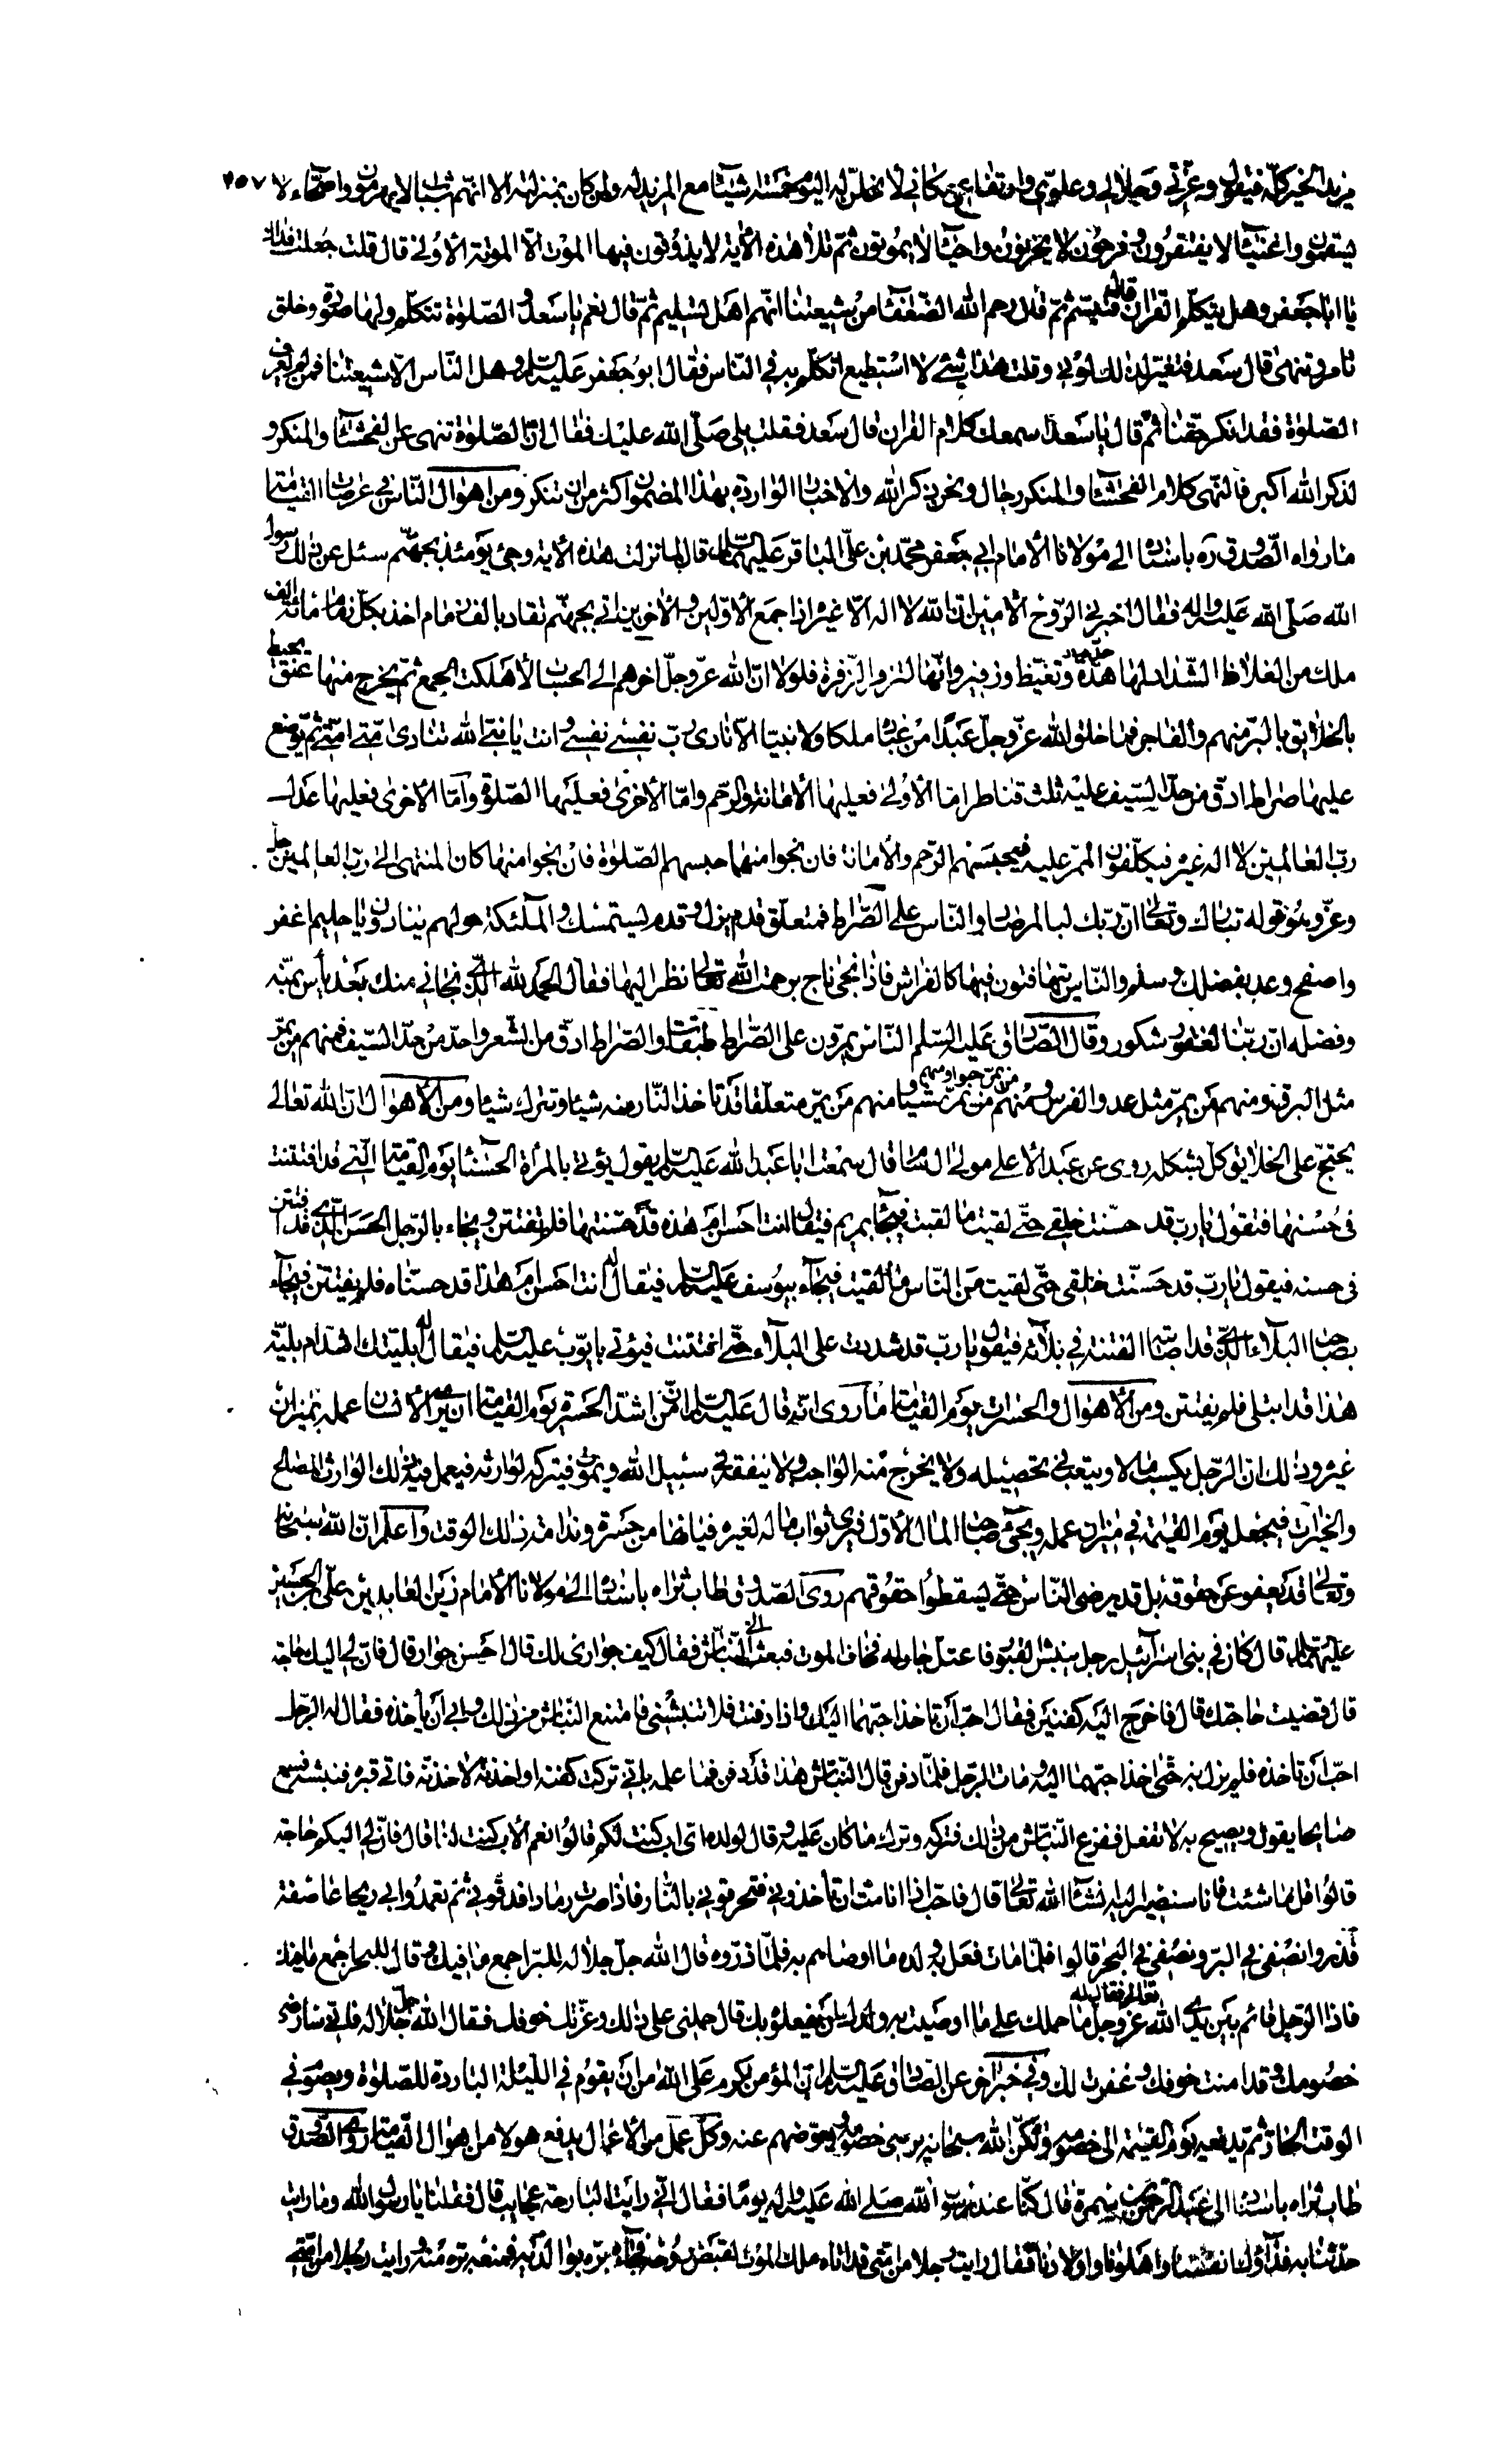 يزيد الخير كله فيقول وعزتي وجلالي وعلوي وارتفاع مكاني لا نحلن له اليوم خمسة اشياء مع المزيد له ولمن كان بمنزلته الا انهم شباب لا يهرمون واصحاء لا ٣٥٧
يسقمون واغنياء لا يفتقرون وفرحون لا يحزنون واحياء لا يموتون ثم تلا هذه الاية لا يذوقون فيها الموت الا الموتة الاولى قال قلت جعلت فداك
يا ابا جعفر وهل يتكلم القران قال فتبسم ثم قال رحم الله الضعفاء من شيعتنا انهم اهل تسليم ثم قال نعم يا سعد والصلوة تتكلم ولها صورة وخلق
تامر وتنهى قال سعد فتغير لذلك لوني وقلت هذا شيء لا استطيع اتكلم به في الناس فقال ابو جعفر عليه السلم وهل الناس الا شيعتنا فمن لم يعرف
الصلوة فقد انكر حقنا ثم قال يا سعد اسمعك كلام القران قال سعد فقلت بلى صلى الله عليك فقال ان الصلوة تنهى عن الفحشاء والمنكر و
لذكر الله اكبر فالنهي كلام والفحشاء والمنكر رجال ونحن ذكر الله والاخبار الواردة بهذا المضمون اكثر من ان تنكر ومن اهوال الناس في عرصات القيامة
ما رواه الصدوق ره باسناده الى مولانا الامام ابي جعفر محمد بن علي الباقر عليهما السلام قال لما نزلت هذه الاية وجيء يومئذ بجهنم سئل عن ذلك رسول
الله صلى الله عليه واله فقال اخبرني الروح الامين ان الله لا اله الا غيره اذا جمع الاولين والاخرين اتي بجهنم تقاد بالف زمام اخذ بكل زمام مائة الف
ملك من الغلاظ الشداد لها هدة وتغيظ وزفير وانها لتزفر الزفرة فلولا ان الله عز وجل اخرهم الى الحساب لاهلكت الجمع ثم يخرج منها عنق يحيط
بالخلايق البر منهم والفاجر فما خلق الله عز وجل عبدا من عباده ملكا ولا نبيا الا نادى رب نفسي نفسي وانت يا نبي الله تنادى امتي امتي ثم يوضع
عليها صراط ادق من حد السيف عليه ثلث قناطر اما الاولى فعليها الامانة والرحم واما الاخرى فعليها الصلوة واما الاخرى فعليها عدل
رب العالمين لا اله غيره فيكلفون الممر عليه فيحبسهم الرحم والامانة فان نجوا منها حبسهم الصلوة فان نجوا منها كان المنتهى الى رب العالمين جل
وعز وهو قوله تبارك وتعالى ان ربك لبالمرصاد والناس على الصراط فمتعلق وقدم يزل وقدم يستمسك والملئكة حولهم ينادون يا حليم اغفر
واصفح وعد بفضلك وسلم والناس يتهافتون فيها كالفراش فاذا نجى ناج برحمة الله تعالى نظر اليها فقال الحمد لله الذي نجاني منك بعد ياس بمنه
وفضله ان ربنا لغفور شكور وقال الصادق عليه السلم الناس يمرون على الصراط طبقات والصراط ادق من الشعر واحد من حد السيف فمنهم من يمر
مثل البرق ومنهم من يمر مثل عدو الفرس ومنهم من يمر حبوا ومنهم من يمر مشيا ومنهم من يمر متعلقا قد تاخذ النار منه شيئا وتترك شيئا ومن الاهوال ان الله تعالى
يحتج على الخلايق كل بشكله روى عن عبد الاعلى مولى ال سام قال سمعت ابا عبد الله عليه السلم يقول يؤتى بالمراة الحسناء يوم القيامة التي قد افتتنت
في حسنها فتقول يا رب قد حسنت خلقي حتى لقيت ما لقيت فيجاء بمريم فيقال انت احسن ام هذه قد حسنتها فلم تفتتن ويجاء بالرجل الحسن الذي قد افتتن
في حسنه فيقول يا رب قد حسنت خلقي حتى لقيت من الناس ما لقيت فيجاء بيوسف عليه السلم فيقال له انت احسن ام هذا قد حسناه فلم يفتتن فيجاء
بصاحب البلاء الذي قد اصابته الفتنة في بلائه فيقول يا رب قد شددت على البلاء حتى افتتنت فيؤتى بايوب عليه السلم فيقال له ابليتك اشد ام بلية
هذا قد ابتلى فلم يفتتن ومن الاهوال والحسرات يوم القيامة ما روى انه قال عليه السلم ان من اشد الحسرة يوم القيامة ان يرى الانسان عمله بميزان
غيره وذلك ان الرجل يكسب مالا ويتعب في تحصيله ولا يخرج منه الواجب ولا ينفقه في سبيل الله ويموت فيتركه لوارثه فيعمل فيه ذلك الوارث المصالح
والخيرات فيجعل يوم القيمة في ميزان عمله ويجيء صاحب المال الاول فيرى ثواب ماله لغيره فيا لها من حسرة وندامة ذلك الوقت واعلم ان الله سبحانه
وتعالى قد يعفو عن حقوقه بل قد يرضى الناس حتى يسقطوا حقوقهم روى الصدوق طاب ثراه باسناده الى مولانا الامام زين العابدين علي بن الحسين
عليهما السلام قال كان في بني اسرائيل رجل ينبش القبور فاعتل جار له فخاف الموت فبعث الى النباش فقال كيف جواري لك قال احسن جوار قال فان لي اليك حاجة
قال قضيت حاجتك قال فاخرج اليه كفنين فقال احب ان تاخذ احبهما اليك واذا دفنت فلا تنبشني فامتنع النباش من ذلك وابى ان ياخذه فقال له الرجل
احب ان تاخذه فلم يزل به حتى اخذ احبهما اليه ومات الرجل فلما دفن قال النباش هذا قد دفن فما علمه باني تركت كفنه او اخذته لاخذنه فاتى قبره فنبشه فسمع
صايحا يقول ويصيح به لا تفعل ففزع النباش من ذلك فتركه وترك ما كان عليه وقال لولده اي اب كنت لكم قالوا نعم الاب كنت لنا قال فان لي اليكم حاجة
قالوا قل ما شئت فانا سنصير اليه انشاء الله تعالى قال فاحب اذا انا مت ان تاخذوني فتحرقوني بالنار فاذا صرت رمادا فدقوني ثم تعمدوا بي ريحا عاصفة
فذروا نصفي في البر ونصفي في البحر قالوا فلما مات فعل به ولده ما اوصاهم به فلما ذروه قال الله جل جلاله للبر اجمع ما فيك وقال للبحر اجمع ما فيك
فاذا الرجل قائم بين يدي الله تعالى فقال له عز وجل ما حملك على ما اوصيت به ولدك ان يفعلوه بك قال حملني على ذلك وعزتك خوفك فقال الله جل جلاله فاني سارضي
خصومك وقد امنت خوفك وغفرت لك وفي خبر اخر عن الصادق عليه السلم ان المؤمن ليكرم على الله من ان يقوم في الليلة الباردة للصلوة ويصوم في
الوقت الحار ثم يدفعه يوم القيمة الى خصومه ولكن الله سبحانه يرضي خصومه ويعوضهم عنه وكل عمل من الاعمال يدفع هولا من اهوال القيامة روى الصدوق
طاب ثراه باسناده الى عبد الرحمن بن سمرة قال كنا عند رسول الله صلى الله عليه واله يوما فقال اني رايت البارحة عجايب قال فقلنا يا رسول الله وما رايت
حدثنا به فداؤك انفسنا واهلونا واولادنا فقال رايت رجلا من امتي قد اتاه ملك الموت لقبض روحه فجاءه بره بوالديه فمنعه منه ورايت رجلا من امتي